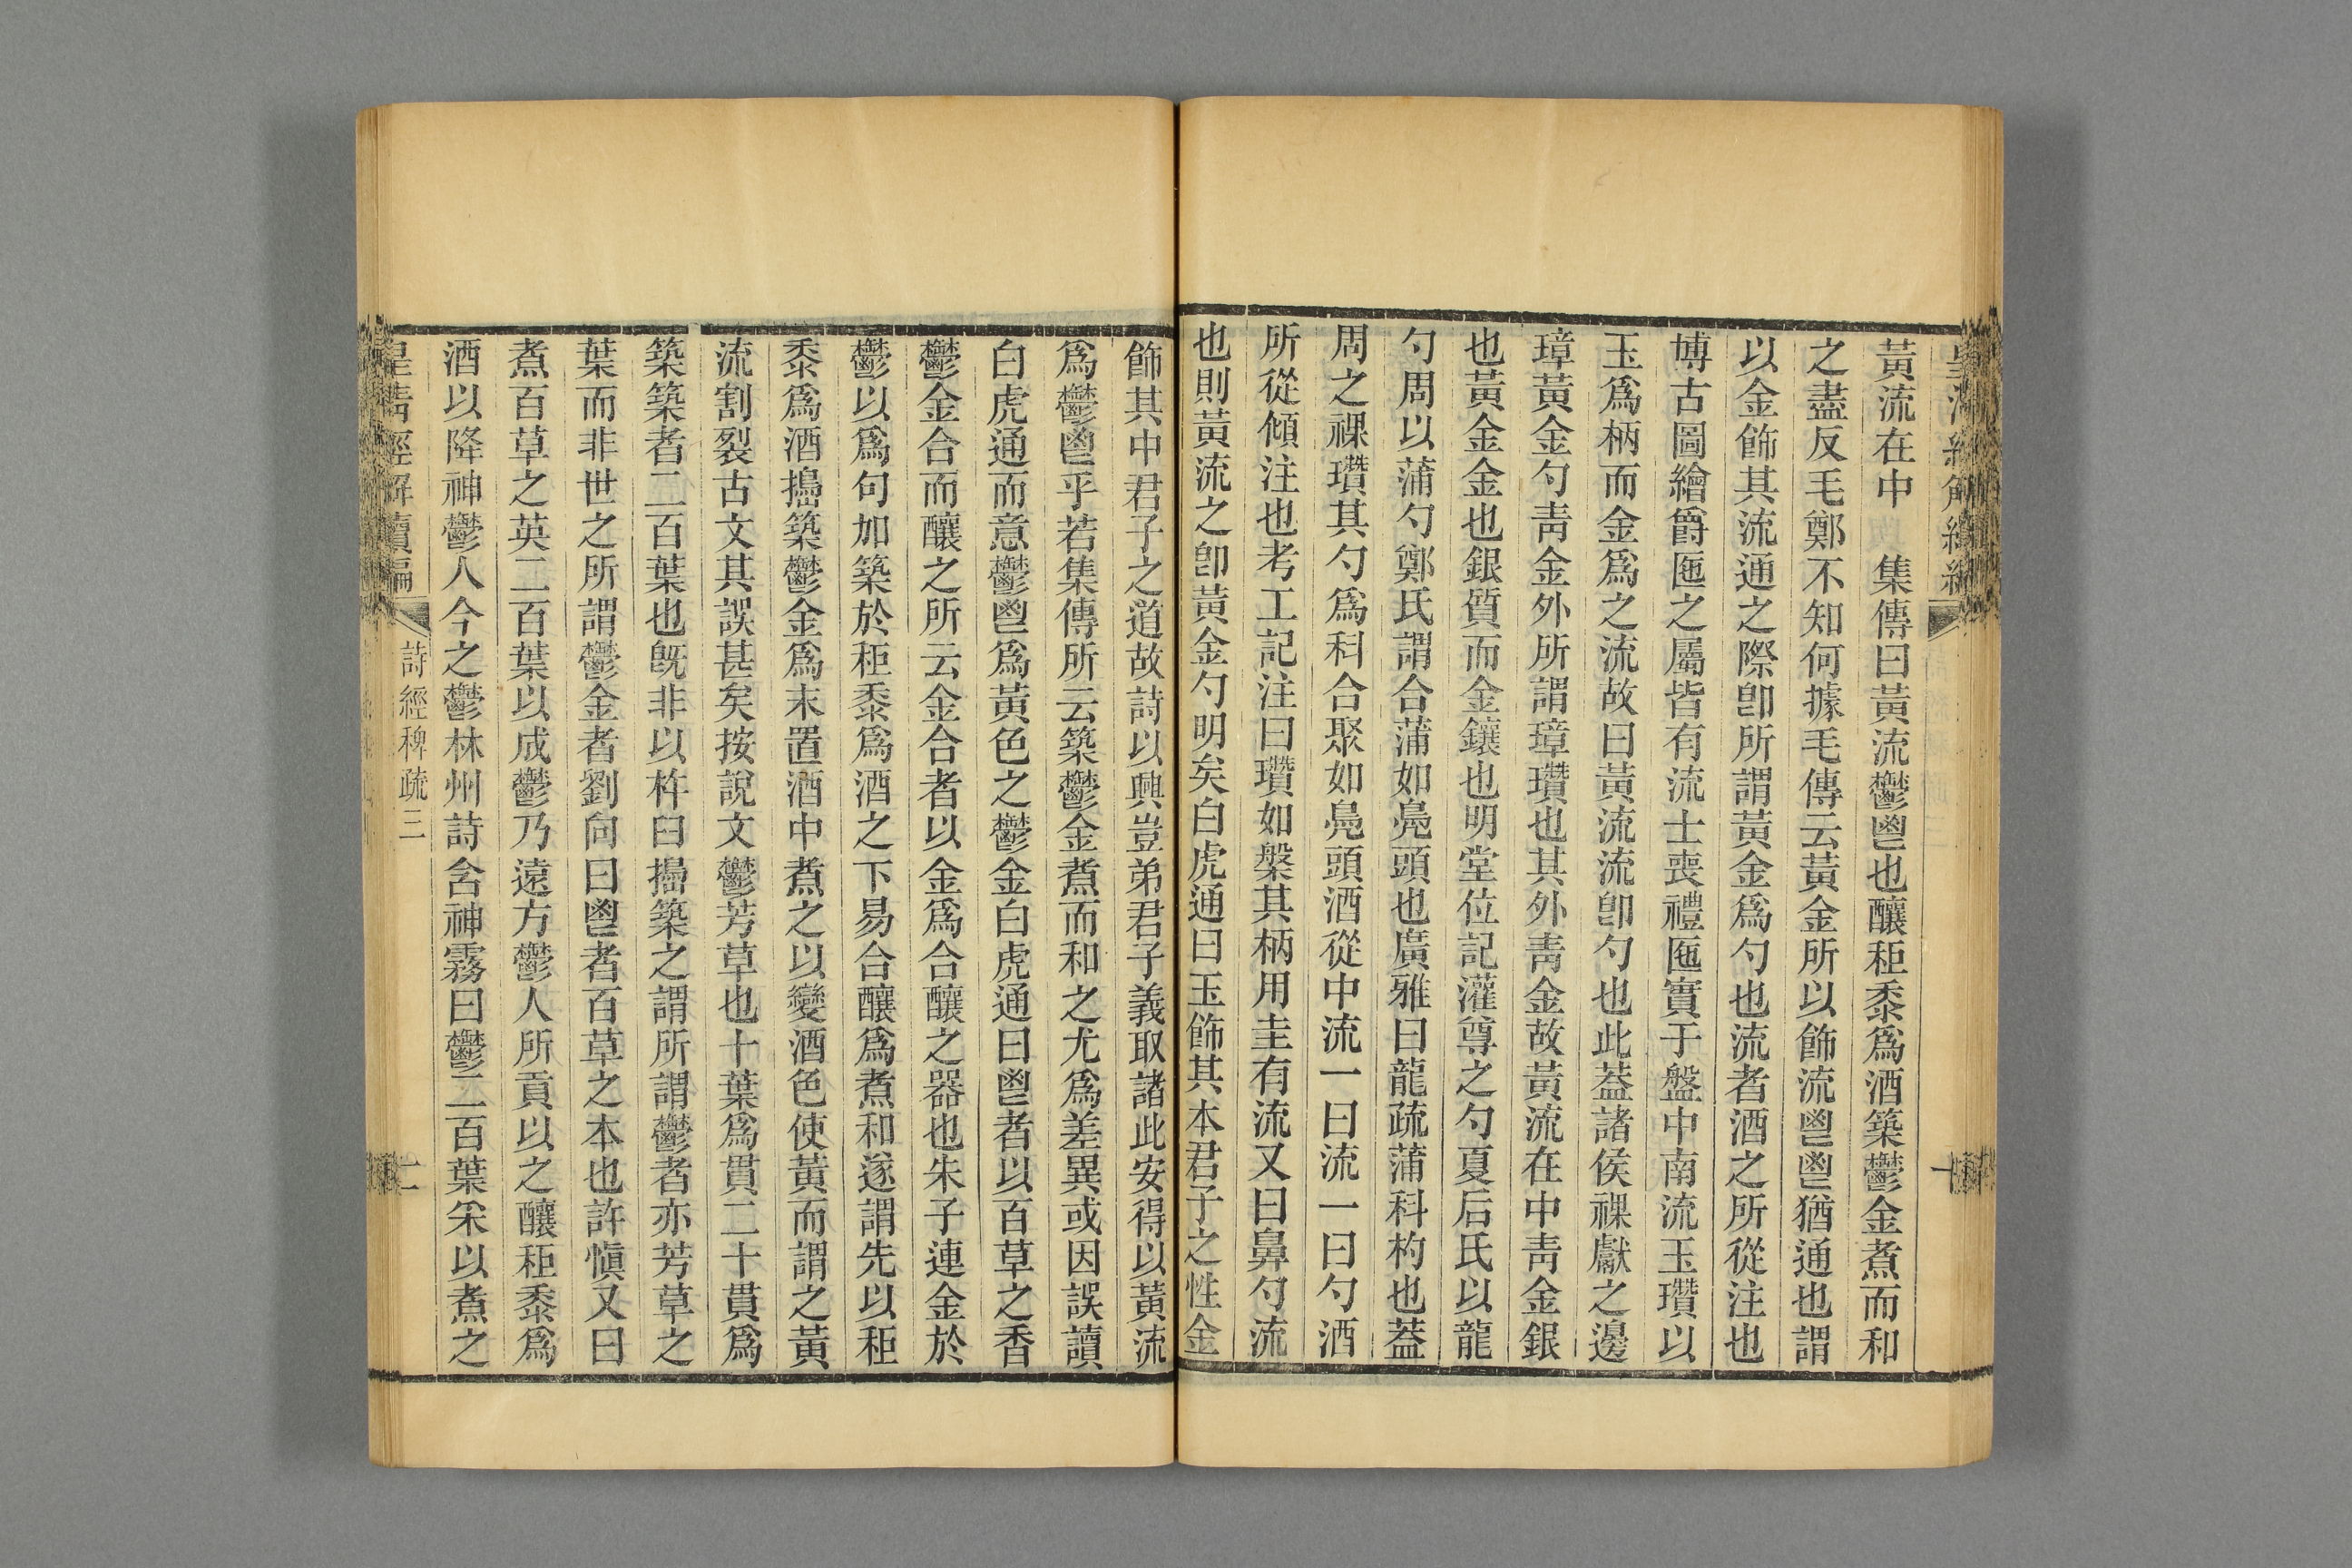 黃流在中　集傳曰黃流鬱鬯也釀秬黍爲酒築鬱金煮而和
之盡反毛鄭不知何據毛傳云黃金所以飾流鬯鬯猶通也謂
以金飾其流通之際卽所謂黃金爲勺也流者酒之所從注也
博古圖繪爵匜之屬皆有流士喪禮匜實于盤中南流玉瓚以
玉爲柄而金爲之流故曰黃流流卽勺也此葢諸侯祼獻之邊
璋黃金勺靑金外所謂璋瓚也其外靑金故黃流在中靑金銀
也黃金金也銀質而金鑲也明堂位記灌尊之勺夏后氏以龍
勺周以蒲勺鄭氏謂合蒲如鳧頭也廣雅曰龍疏蒲科杓也葢
周之祼瓚其勺爲科合聚如鳧頭酒從中流一曰流一曰勺酒
所從傾注也考工記注曰瓚如槃其柄用圭有流又曰鼻勺流
也則黃流之卽黃金勺明矣白虎通曰玉飾其本君子之性金
飾其中君子之道故詩以興豈弟君子義取諸此安得以黃流
爲鬱鬯乎若集傳所云築鬱金煮而和之尤爲差異或因誤讀
白虎通而意鬱鬯爲黃色之鬱金白虎通曰鬯者以百草之香
鬱金合而釀之所云金合者以金爲合釀之器也朱子連金於
鬱以爲句加築於秬黍爲酒之下易合釀爲煮和遂謂先以秬
黍爲酒擣築鬱金爲末置酒中煮之以變酒色使黃而謂之黃
流割裂古文其誤甚矣按說文鬱芳草也十葉爲貫二十貫爲
築築者二百葉也旣非以杵臼擣築之謂所謂鬱者亦芳草之
葉而非世之所謂鬱金者劉向曰鬯者百草之本也許愼又曰
煮百草之英二百葉以成鬱乃遠方鬱人所貢以之釀秬黍爲
酒以降神鬱人今之鬱林州詩含神霧曰鬱二百葉采以煮之
皇淸經解續編　詩經稗疏三　二